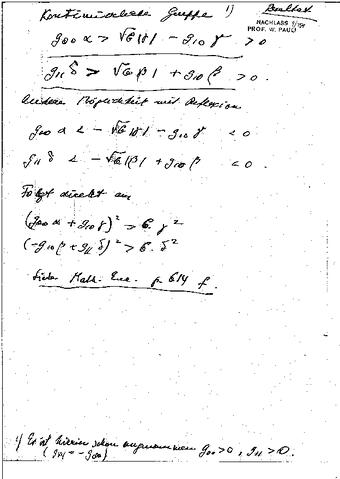 Kontinuierliche Gruppe 1)
NACHLASS
PROF. W. PAULI
g₀₀ α > √G |γ| − g₁₀ γ > 0
g₁₁ δ > √G |β| + g₁₀ β > 0.
Andere Möglichkeit mit Reflexion
g₀₀ α < − √G |γ| − g₁₀ γ < 0
g₁₁ δ < − √G |β| + g₁₀ β < 0.
Folgt direkt aus
(g₀₀ α + g₁₀ γ)² > G. γ²
(−g₁₀ β + g₁₁ δ)² > G. δ²
Siehe Math. Enc. p. 614 f.
1) Es ist hierin schon angenommen g₀₀ > 0, g₁₁ > 0.